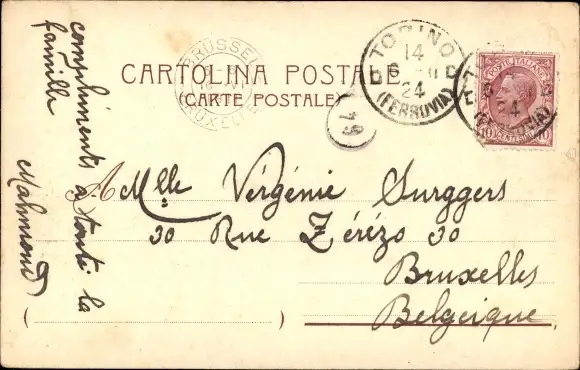 compliments a toute la
famille
Mahmond
CARTOLINA POSTALE
(CARTE POSTALE)
BRUSSEL
BRUXELLES
TORINO
14
6
24
(FERROVIA)
79
POSTE ITALIANE
24
10
CENTESIMI
10
A Mlle Vérgénie Surggers
30 Rue Zérézo 30
Bruxelles
Belgeique